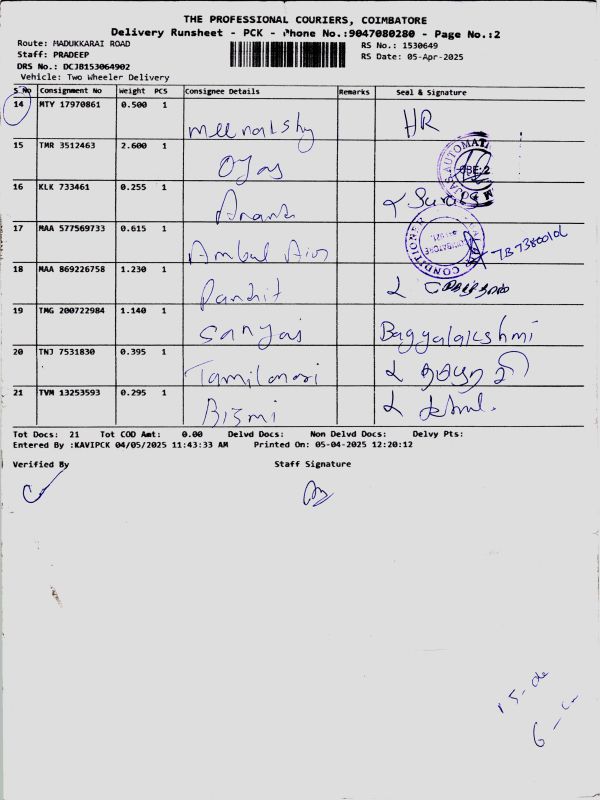 THE PROFESSIONAL COURIERS, COIMBATORE
Delivery Runsheet - PCK - Phone No.:9047080280 - Page No.:2
Route: MADUKKARAI ROAD
RS No.: 1530649
Staff: PRADEEP
RS Date: 05-Apr-2025
DRS No.: DCJB153064902
Vehicle: Two Wheeler Delivery
S No Consignment No Weight PCS Consignee Details Remarks Seal & Signature
14 MTY 17970861 0.500 1
meenakshy HR
15 TMR 3512463 2.600 1
Ojas
16 KLK 733461 0.255 1
Anand
17 MAA 577569733 0.615 1
Ambal Airs
18 MAA 869226758 1.230 1
Pandit
19 TMG 200722984 1.140 1
Sanyas Baggyalakshmi
20 TNJ 7531830 0.395 1
Tamilarasi
21 TVM 13253593 0.295 1
Bismi
Tot Docs: 21 Tot COD Amt: 0.00 Delvd Docs: Non Delvd Docs: Delvy Pts:
Entered By :KAVIPCK 04/05/2025 11:43:33 AM Printed On: 05-04-2025 12:20:12
Verified By Staff Signature